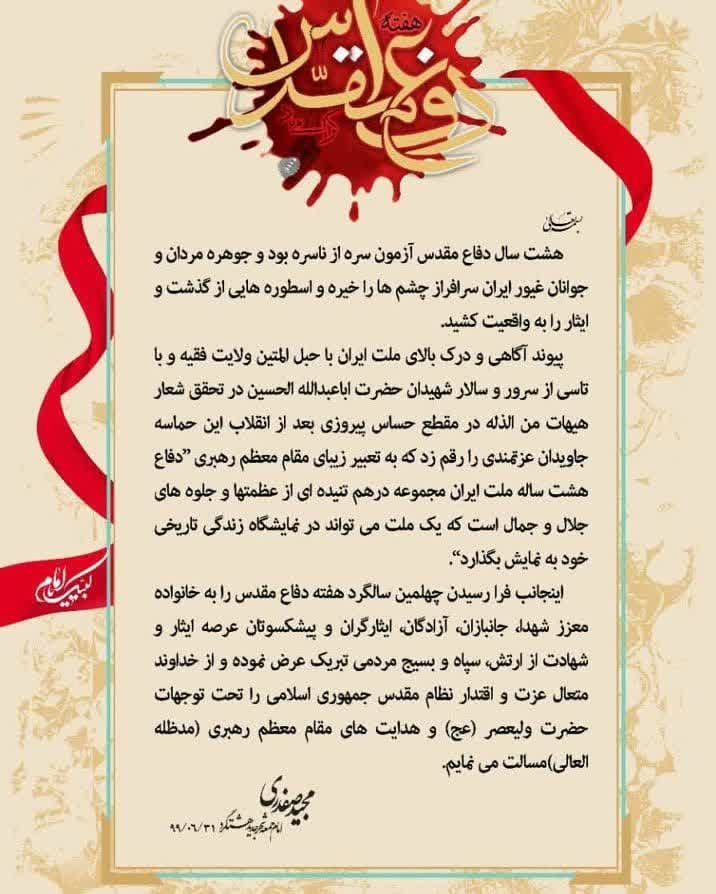 هفته
دفاع مقدس
گرامی باد
بسمه تعالی
هشت سال دفاع مقدس آزمون سره از ناسره بود و جوهره مردان و
جوانان غیور ایران سرافراز چشم ها را خیره و اسطوره هایی از گذشت و
ایثار را به واقعیت کشید.
پیوند آگاهی و درک بالای ملت ایران با حبل المتین ولایت فقیه و با
تاسی از سرور و سالار شهیدان حضرت اباعبدالله الحسین در تحقق شعار
هیهات من الذله در مقطع حساس پیروزی بعد از انقلاب این حماسه
جاویدان عزتمندی را رقم زد که به تعبیر زیبای مقام معظم رهبری "دفاع
هشت ساله ملت ایران مجموعه درهم تنیده ای از عظمتها و جلوه های
جلال و جمال است که یک ملت می تواند در نمایشگاه زندگی تاریخی
خود به نمایش بگذارد“.
اینجانب فرا رسیدن چهلمین سالگرد هفته دفاع مقدس را به خانواده
معزز شهدا، جانبازان، آزادگان، ایثارگران و پیشکسوتان عرصه ایثار و
شهادت از ارتش، سپاه و بسیج مردمی تبریک عرض نموده و از خداوند
متعال عزت و اقتدار نظام مقدس جمهوری اسلامی را تحت توجهات
حضرت ولیعصر (عج) و هدایت های مقام معظم رهبری (مدظله
العالی)مسالت می نمایم.
لبیک یا امام
مجید صفدری
امام جمعه شهر جدید هشتگرد ۹۹/۰۶/۳۱